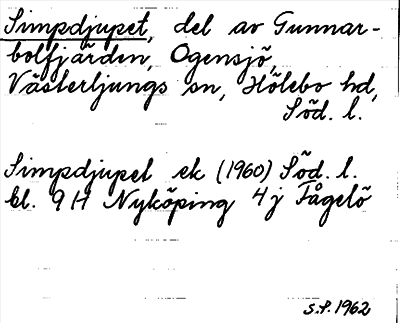 Simpdjupet, del av Gunnar-
bolfjärden, Ogensjö,
Västerljungs sn, Hölebo hd,
Söd. l.
Simpdjupet ek (1960) Söd. l.
bl. 9 H Nyköping 4 j Fågelö
s.f. 1962